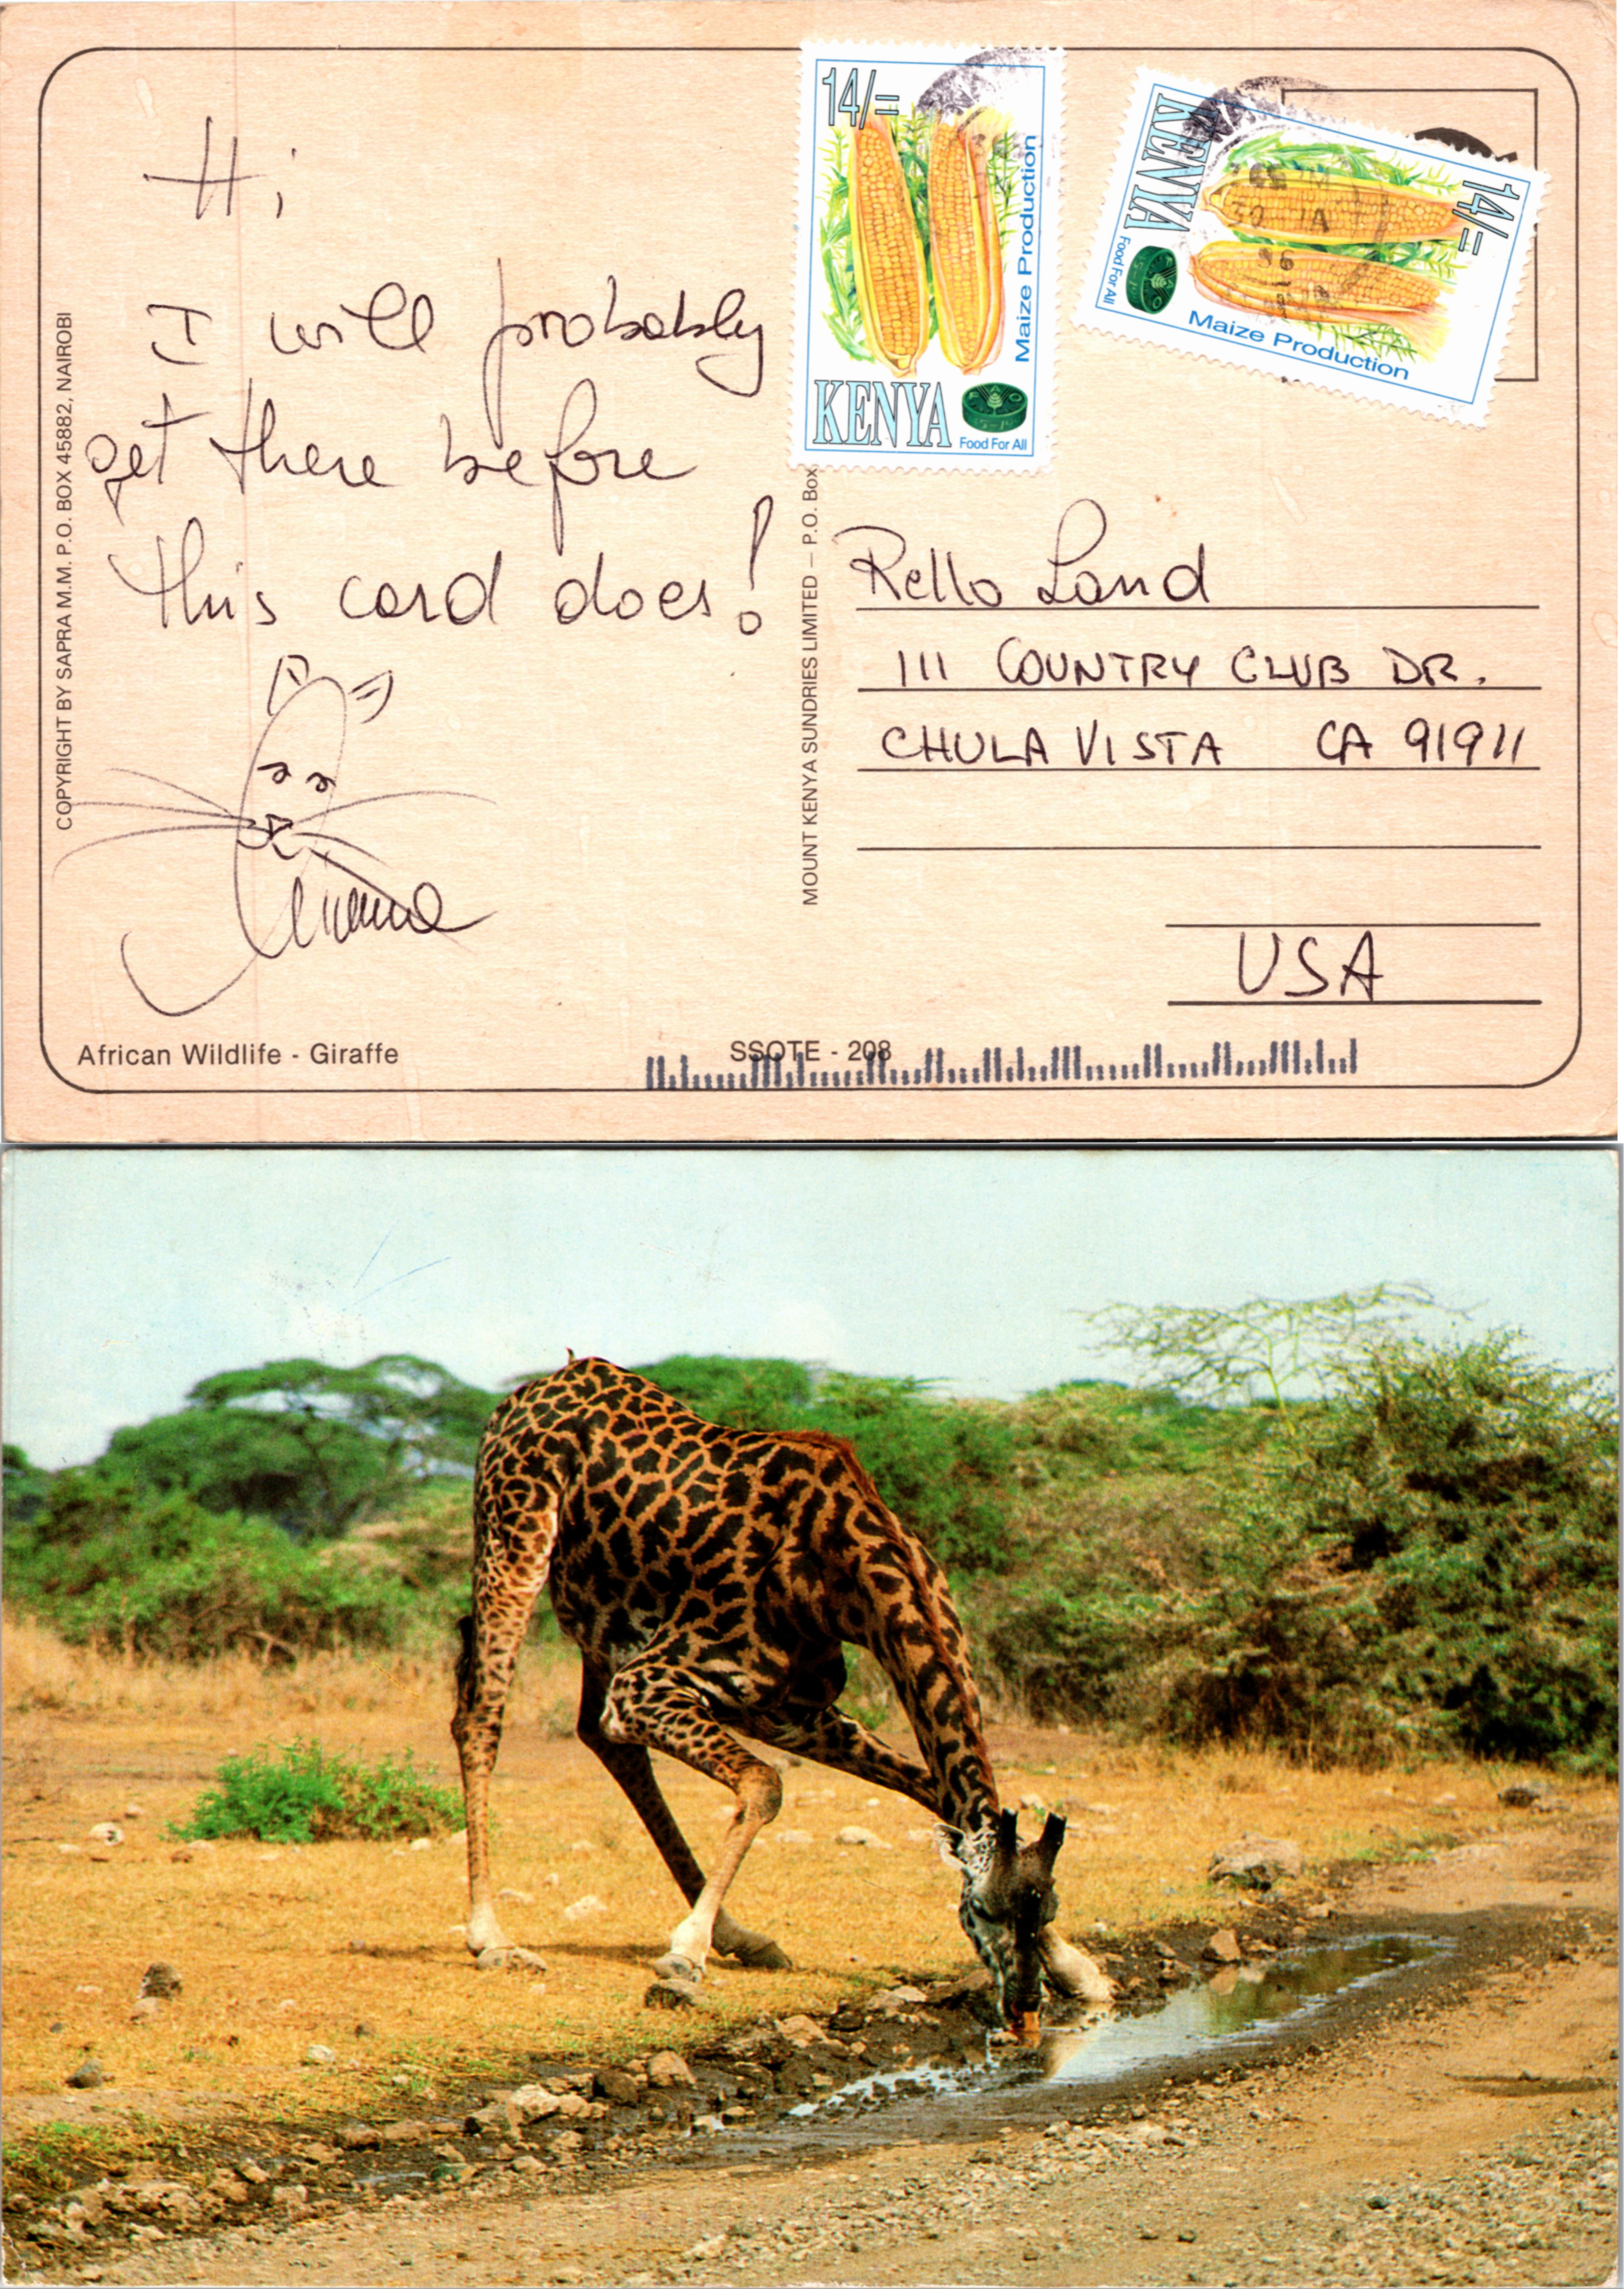 Hi
I will probably
get there before
this card does!
COPYRIGHT BY SAPRA M.M. P.O. BOX 45882, NAIROBI
African Wildlife - Giraffe
SSOTE - 208
MOUNT KENYA SUNDRIES LIMITED — P.O. Box
14/=
Maize Production
KENYA
Food For All
14/=
Maize Production
KENYA
Food For All
Rello Land
111 COUNTRY CLUB DR.
CHULA VISTA CA 91911
USA